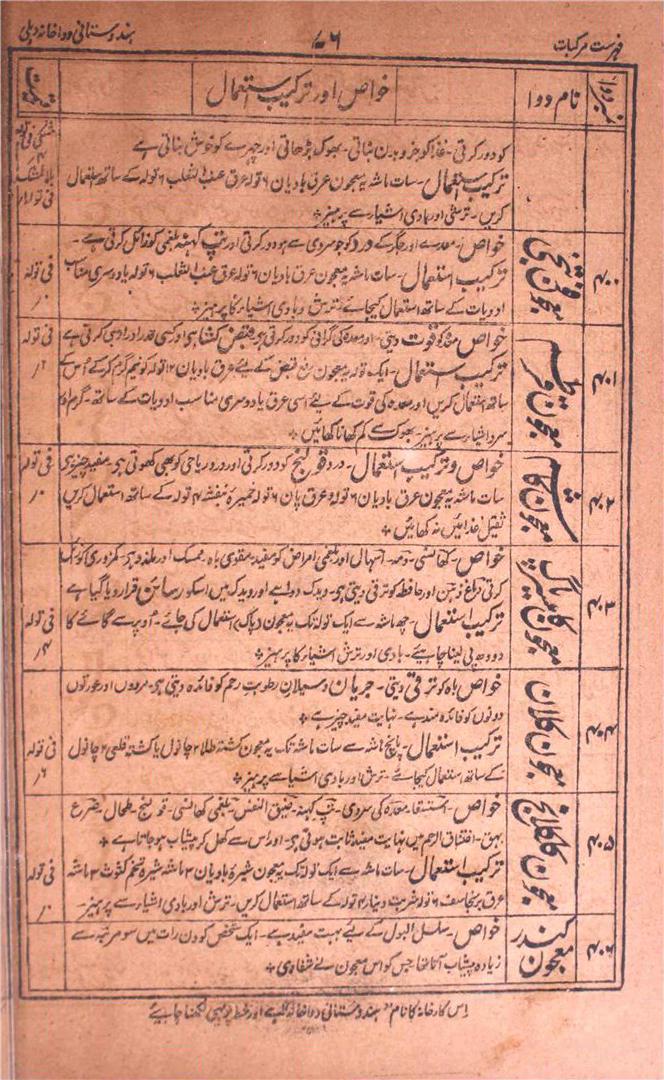 فہرست مرکبات ۷۶ ہندوستانی دواخانہ دہلی
نمبر دوا نام دوا خواص اور ترکیب استعمال قیمت
کو دور کرتی۔ غذا کو جزو بدن بناتی۔ بھوک بڑھاتی اور چہرے کو خوش بناتی ہے
ترکیب استعمال۔ سات ماشہ یہ معجون عرق بادیان ۶ تولہ عرق عنب الثعلب ۶ تولہ کے ساتھ استعمال
کریں۔ ترشی اور بادی اشیاء سے پرہیز
۴۰۰ معجون
خواص۔ معدے اور جگر کے درد کو جو سردی سے ہو دور کرتی اور تپ کہنہ بلغمی کو زائل کرتی ہے۔
ترکیب استعمال۔ سات ماشہ یہ معجون عرق بادیان ۶ تولہ عرق عنب الثعلب ۶ تولہ یا دوسری مناسب فی تولہ
ادویات کے ساتھ استعمال کیجائے۔ ترش و بادی اشیاء کا پرہیز
۴۰۱ معجون
خواص۔ معدہ کو قوت دیتی۔ اور معدہ کی گرانی کو دور کرتی ہے قبض کشا ہے اور کسی قدر ادرار بھی کرتی ہے فی تولہ
ترکیب استعمال۔ ایک تولہ یہ معجون رفع قبض کے لئے عرق بادیان ۱۲ تولہ کو نیم گرم کر کے اُس کے
ساتھ استعمال کریں اور معدہ کی قوت کے لئے اسی عرق یا دوسری مناسب ادویات کے ساتھ۔ گرم و
سرد اشیاء سے پرہیز بھوک سے کم کھانا کھائیں
۴۰۲ معجون
خواص و ترکیب استعمال۔ درد قولنج کو دور کرتی اور درد ریاحی کو بھی کھوتی ہے۔ مفید چیز ہے فی تولہ
سات ماشہ یہ معجون عرق بادیان ۶ تولہ و عرق پان ۶ تولہ خمیرہ بنفشہ ۴ تولہ کے ساتھ استعمال کریں
ثقیل غذائیں نہ کھائیں
۴۰۳ معجون
خواص۔ کھانسی۔ دمہ۔ اسہال اور بلغمی امراض کو مفید۔ مقوی باہ ممسک اور ملذذ ہے۔ کمزوری کو
کرتی دماغ ذہن اور حافظہ کو ترقی دیتی ہے۔ ویدک دوا ہے اور ویدک میں اسکو رسائن قرار دیا گیا ہے
ترکیب استعمال۔ چھ ماشہ سے ایک تولہ تک یہ معجون استعمال کی جائے۔ اوپر سے گائے کا فی تولہ
دودھ پی لینا چاہیے۔ بادی اور ترش اشیاء کا پرہیز
۴۰۴ معجون کلان
خواص باہ کو ترقی دیتی۔ جریان و سیلان رطوبت رحم کو فائدہ دیتی ہے۔ مردوں اور عورتوں
دونوں کو فائدہ مند ہے۔ نہایت مفید چیز ہے
ترکیب استعمال۔ پانچ ماشہ سے سات ماشہ تک یہ معجون کشتہ طلا ۲ چانول یا کشتہ قلعی ۲ چانول فی تولہ
کے ساتھ استعمال کیجائے۔ ترش اور بادی اشیا سے پرہیز
۴۰۵ معجون کلکلانج
خواص۔ استسقا۔ معدہ کی سردی۔ تپ کہنہ۔ ضیق النفس۔ بلغمی کھانسی۔ قولنج۔ طحال۔ صرع
بہق۔ اختناق الرحم میں نہایت مفید ثابت ہوتی ہے۔ اور اس سے کھل کر پیشاب ہو جاتا ہے
ترکیب استعمال۔ سات ماشہ سے ایک تولہ تک یہ معجون شیرہ بادیان ۳ ماشہ شیرہ تخم کثوث ۳ ماشہ فی تولہ
عرق برنجاسف ۶ تولہ شربت دینار ۴ تولہ کے ساتھ استعمال کریں۔ ترش اور بادی اشیاء سے پرہیز۔
۴۰۶ معجون کندر
خواص۔ سلسل البول کے لیے بہت مفید ہے۔ ایک شخص کو دن رات میں سو مرتبہ سے
زیادہ پیشاب آتا تھا جس کو اس معجون نے شفا دی
اِس کارخانہ کا نام "ہندوستانی دواخانہ" ہے اور خط پر یہی لکھنا چاہیے